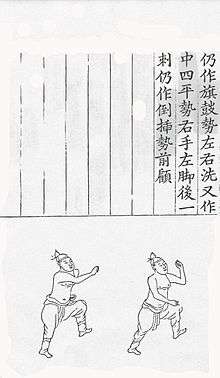 仍作旗鼓勢左右洗又作
中四平勢右手左脚後一
刺仍作倒揷勢前顧